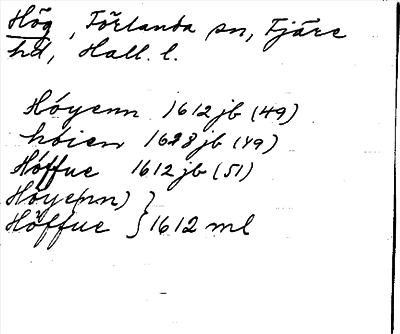 Hög, Förlanda sn, Fjäre
hd, Hall. l.
Höyenn 1612 jb (49)
höien 1628 jb (49)
Höffue 1612 jb (51)
Höye(nn) }
Höffue } 1612 ml